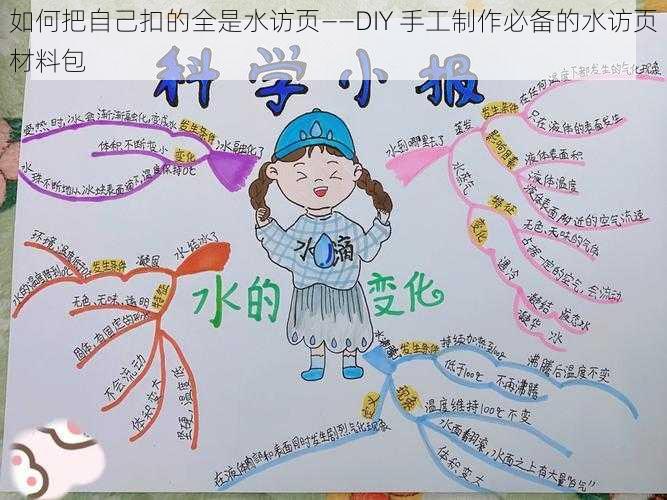 如何把自己扣的全是水访页——DIY 手工制作必备的水访页
材料包
科学小报
受热时,冰会渐渐融化变成水
发生条件
冰融化了
体积不断变小
变化
水珠不断地从冰块表面滴下,温度保持0℃
水到哪里去了
蒸发
发生条件
在任何温度下都发生的气化现象
只在液体的表面发生
影响因素
液体表面积
液体温度
液体表面附近的空气流速
水蒸气
特征
无色、无味的气体
占据一定的空气,会流动
变化
遇冷
凝结 液态水
凝华 冰
水结冰了
凝固
发生条件
环境温度低于
水的温度降到0℃
特征
无色、无味、透明
固体,有固定的形状
不会流动
体积变大
坚硬,温度低
水滴
水的变化
水沸腾
发生条件
持续加热到100℃
低于100℃ 不再沸腾
沸腾后温度不变
现象
温度维持100℃不变
水面翻滚,水面之上有大量"白气"
体积变大
定义
在液体内部和表面同时发生剧烈气化现象